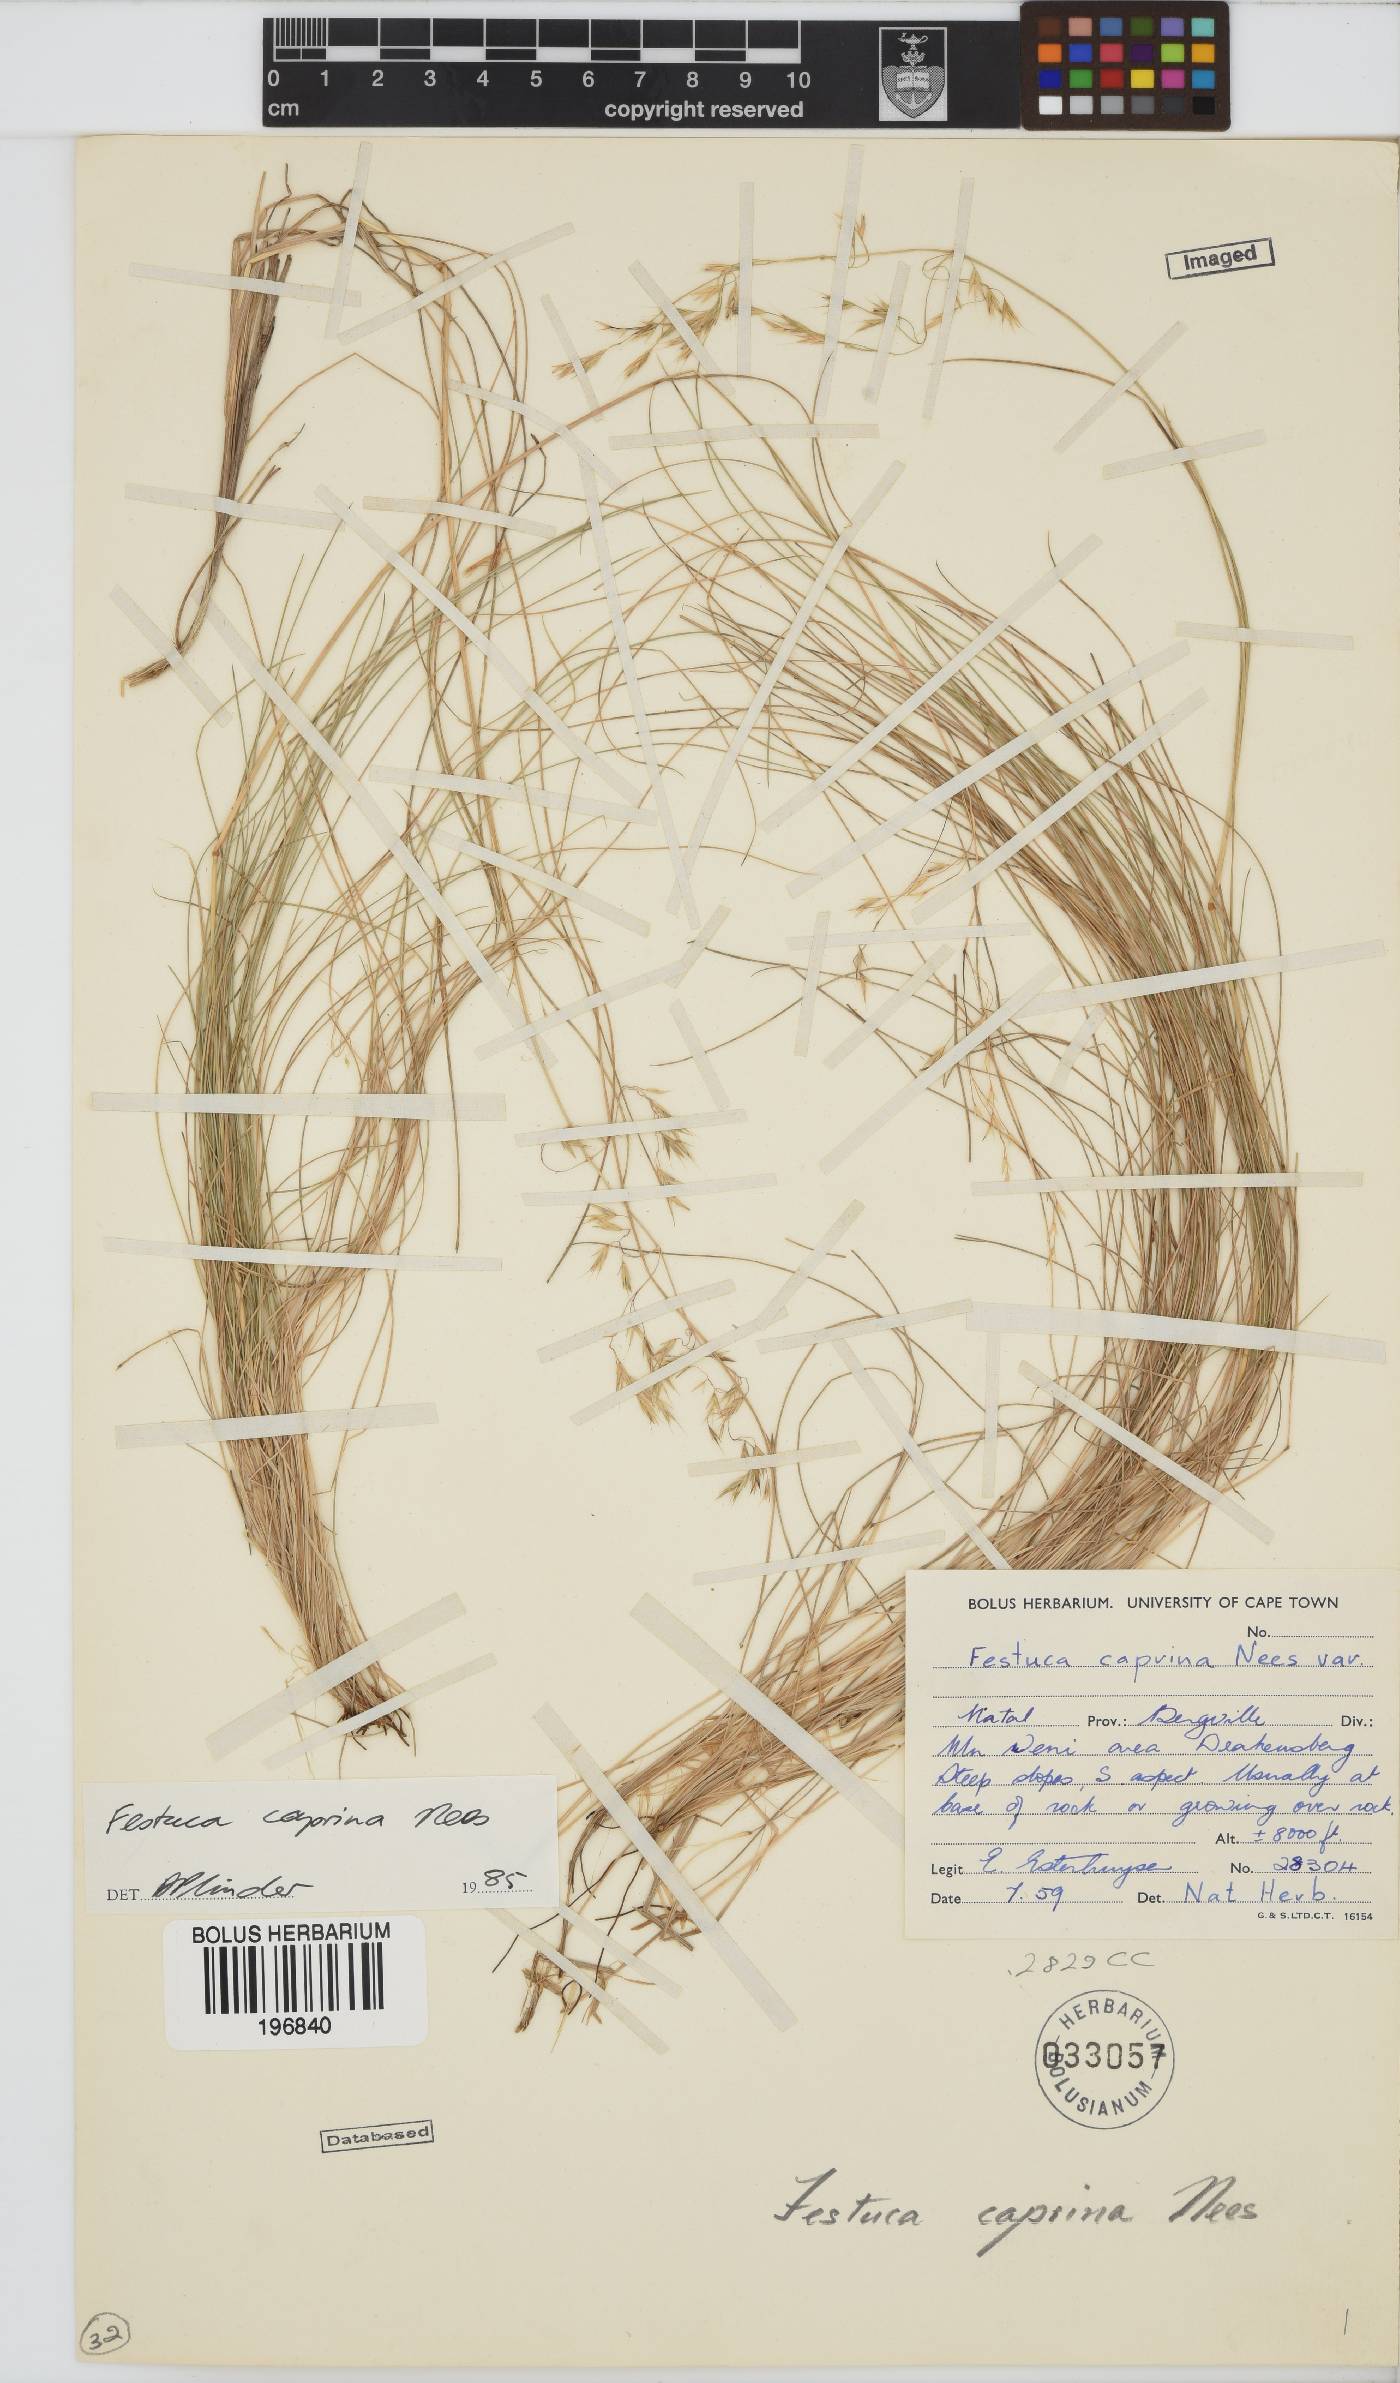 0 1 2 3 4 5 6 7 8 9 10
cm
copyright reserved
Imaged
BOLUS HERBARIUM. UNIVERSITY OF CAPE TOWN
No.
Festuca caprina Nees var.
Natal Prov.: Bergville Div.:
Mn Weni area Drakensberg
Steep slopes, S aspect. Usually at
base of rock or growing over rock.
Alt. ± 8000 ft.
Legit E. Esterhuysen No. 28304
Date 7.59 Det. Nat Herb.
G. & S. LTD. C.T. 16154
Festuca caprina Nees
DET. HPLinder 1985
BOLUS HERBARIUM
196840
2829CC
HERBARIUM
033057
BOLUSIANUM
Databased
Festuca caprina Nees
32
1